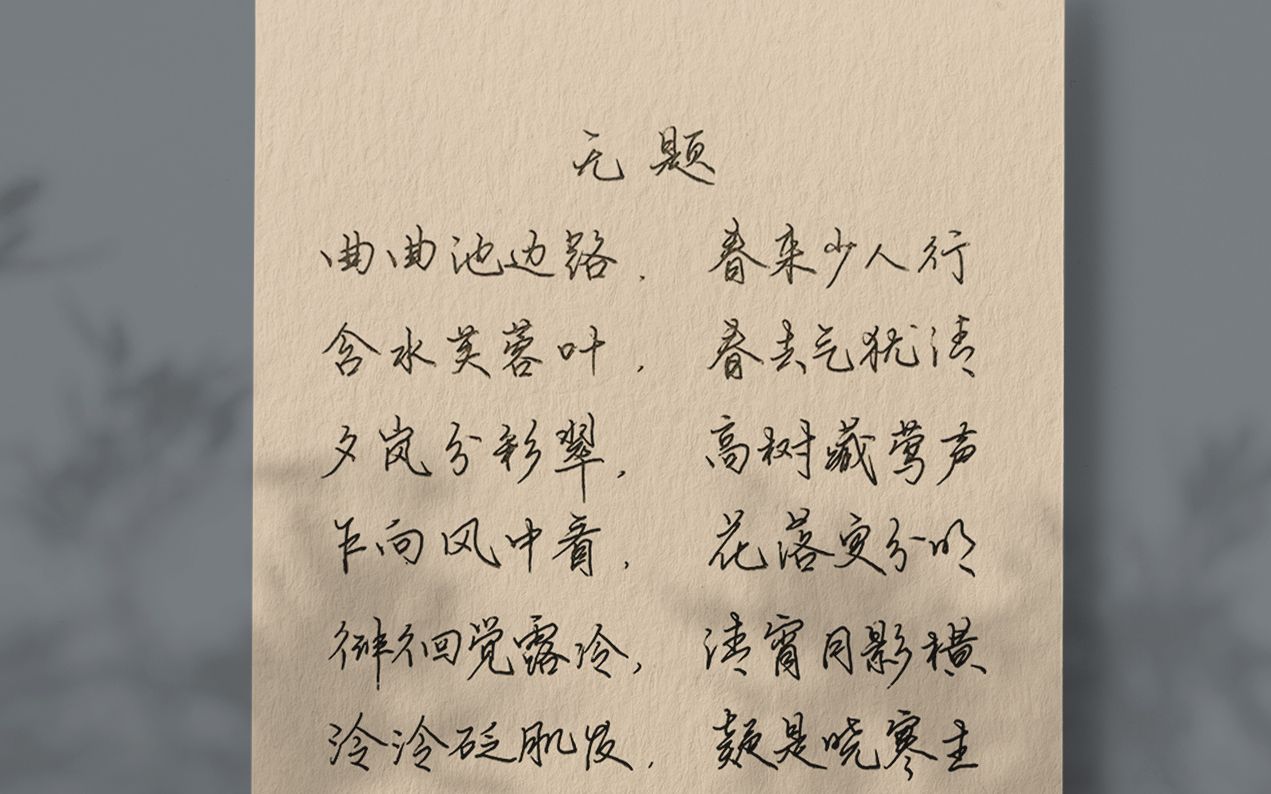 无题
曲曲池边路，春来少人行
含水芙蓉叶，春去气犹清
夕岚分彩翠，高树藏莺声
乍向风中看，花落更分明
徘徊觉露冷，清宵月影横
泠泠砭肌发，疑是晓寒生